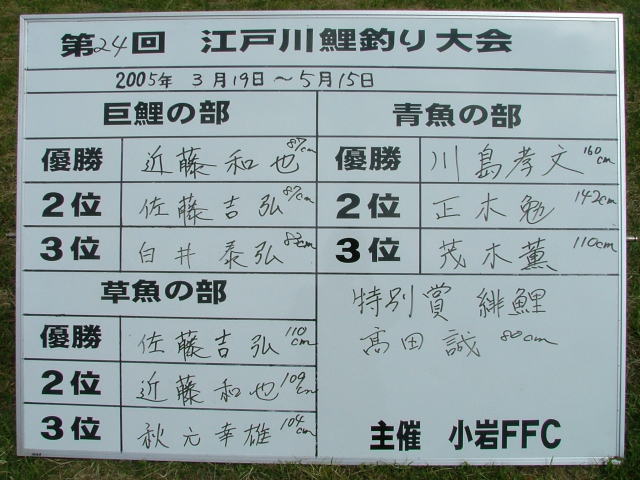 第24回 江戸川鯉釣り大会
2005年 3月19日 ～5月15日
巨鯉の部
優勝 近藤和也 87cm
2位 佐藤吉弘 87cm
3位 白井泰弘 82cm
草魚の部
優勝 佐藤吉弘 110cm
2位 近藤和也 109cm
3位 秋元幸雄 104cm
青魚の部
優勝 川島孝文 160cm
2位 正木勉 142cm
3位 茂木薫 110cm
特別賞 緋鯉
高田誠 80cm
主催 小岩FFC